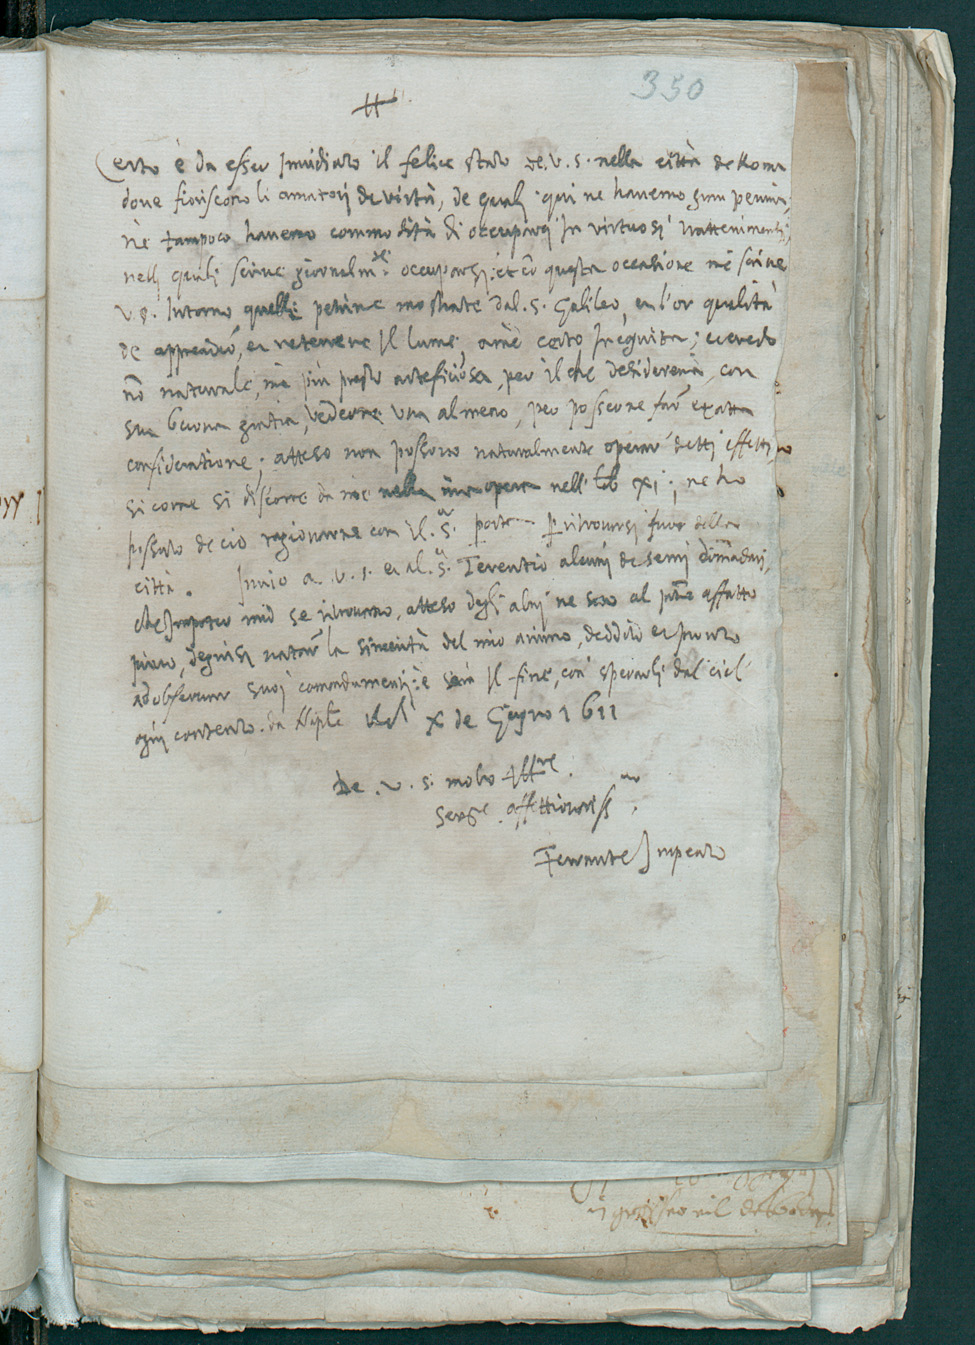 350
Certo è da esser Invidiato il felice stato de V. S. nella città de Roma
dove fioriscono li amatorij de virtù, de quali qui ne havemo gran penuria,
nè tampoco havemo commodità di occuparci In virtuosi trattenimenti,
nelli quali scrive giornalmte occuparsi: et questa occasione me scrive
V S. Intorno quelle petrine mostrate dal S. Galileo, la lor qualità
de apprender, et retenere Il lume, a me certo Incognita; et credo
nō naturale, ma più presto arteficiosa, per il che desidereria, con
sua buona gratia, vederne una almeno, per posserne far exatta
consideratione; atteso non possono naturalmente operar detti effetti,
si come si discorre da me nella mia opera nell lib XI; ne ho
possuto de ciò ragionarne con Il Sr. porta per ritrovarsi fuor della
città. Invio a V. S. et al Sr. Terentio alcuni de semi domādati,
che In poter mio se ritrovano, atteso degli altri ne sono al pnte affatto
privo, degnisi notar la sincerità del mio animo, deddito et pronto
ad observar suoi comandamenti: e sarà Il fine, con sperarli dal ciel
ogni contento. da Napole X de Giugno 1611
De V. S. molto Illre
Serre affettionatiss mo
Ferrante Imperato